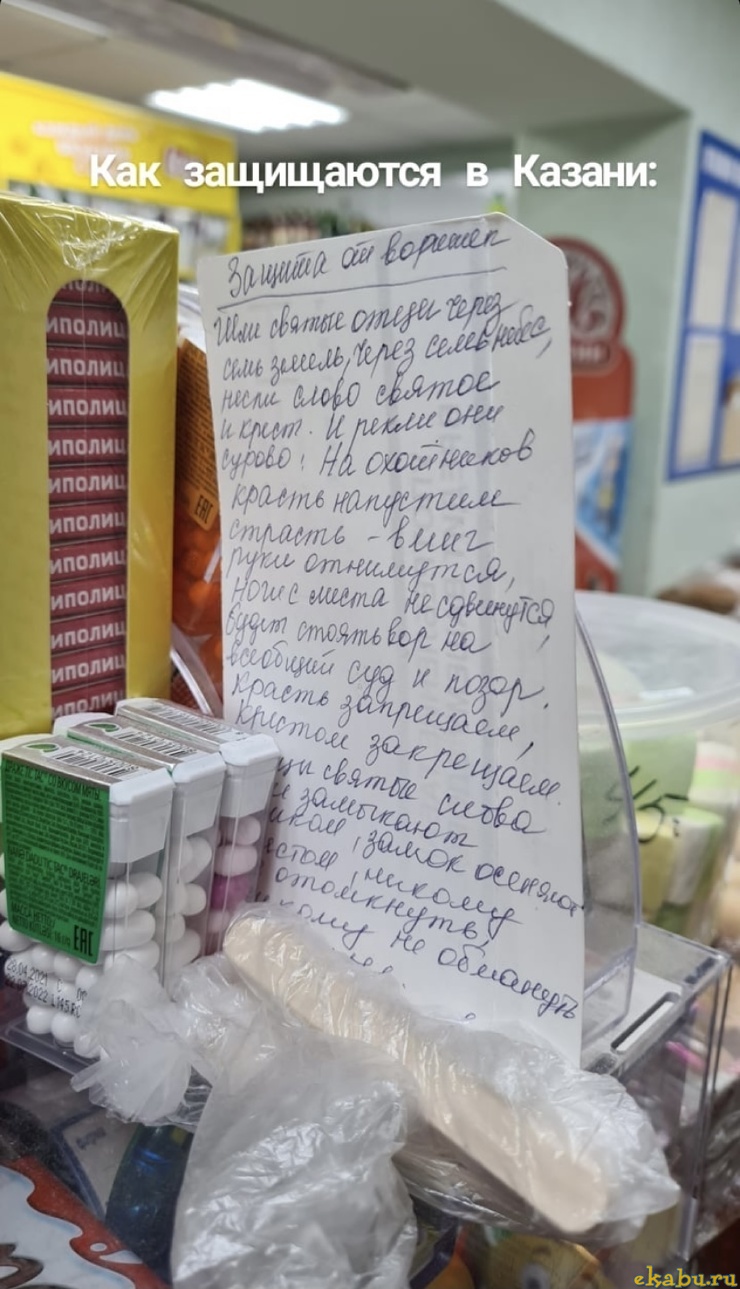 Как защищаются в Казани:
Защита от воришек
Шли святые отцы через
семь земель, через семь небес,
несли слово святое
и крест. И рекли они
сурово: На охотников
красть напустим
страсть - вмиг
руки отнимутся,
ноги с места не сдвинутся,
будет стоять вор на
всеобщий суд и позор.
Красть запрещаем,
крестом закрещаем.
святые слова
замыкают
замок осеняют
никому
отомкнуть,
не обмануть
ИПОЛИЦ
ИПОЛИЦ
ИПОЛИЦ
ИПОЛИЦ
ИПОЛИЦ
ИПОЛИЦ
ИПОЛИЦ
ИПОЛИЦ
ИПОЛИЦ
ИПОЛИЦ
ИПОЛИЦ
EAC
EAC
28.04.2021
2022 L145R
ekabu.ru